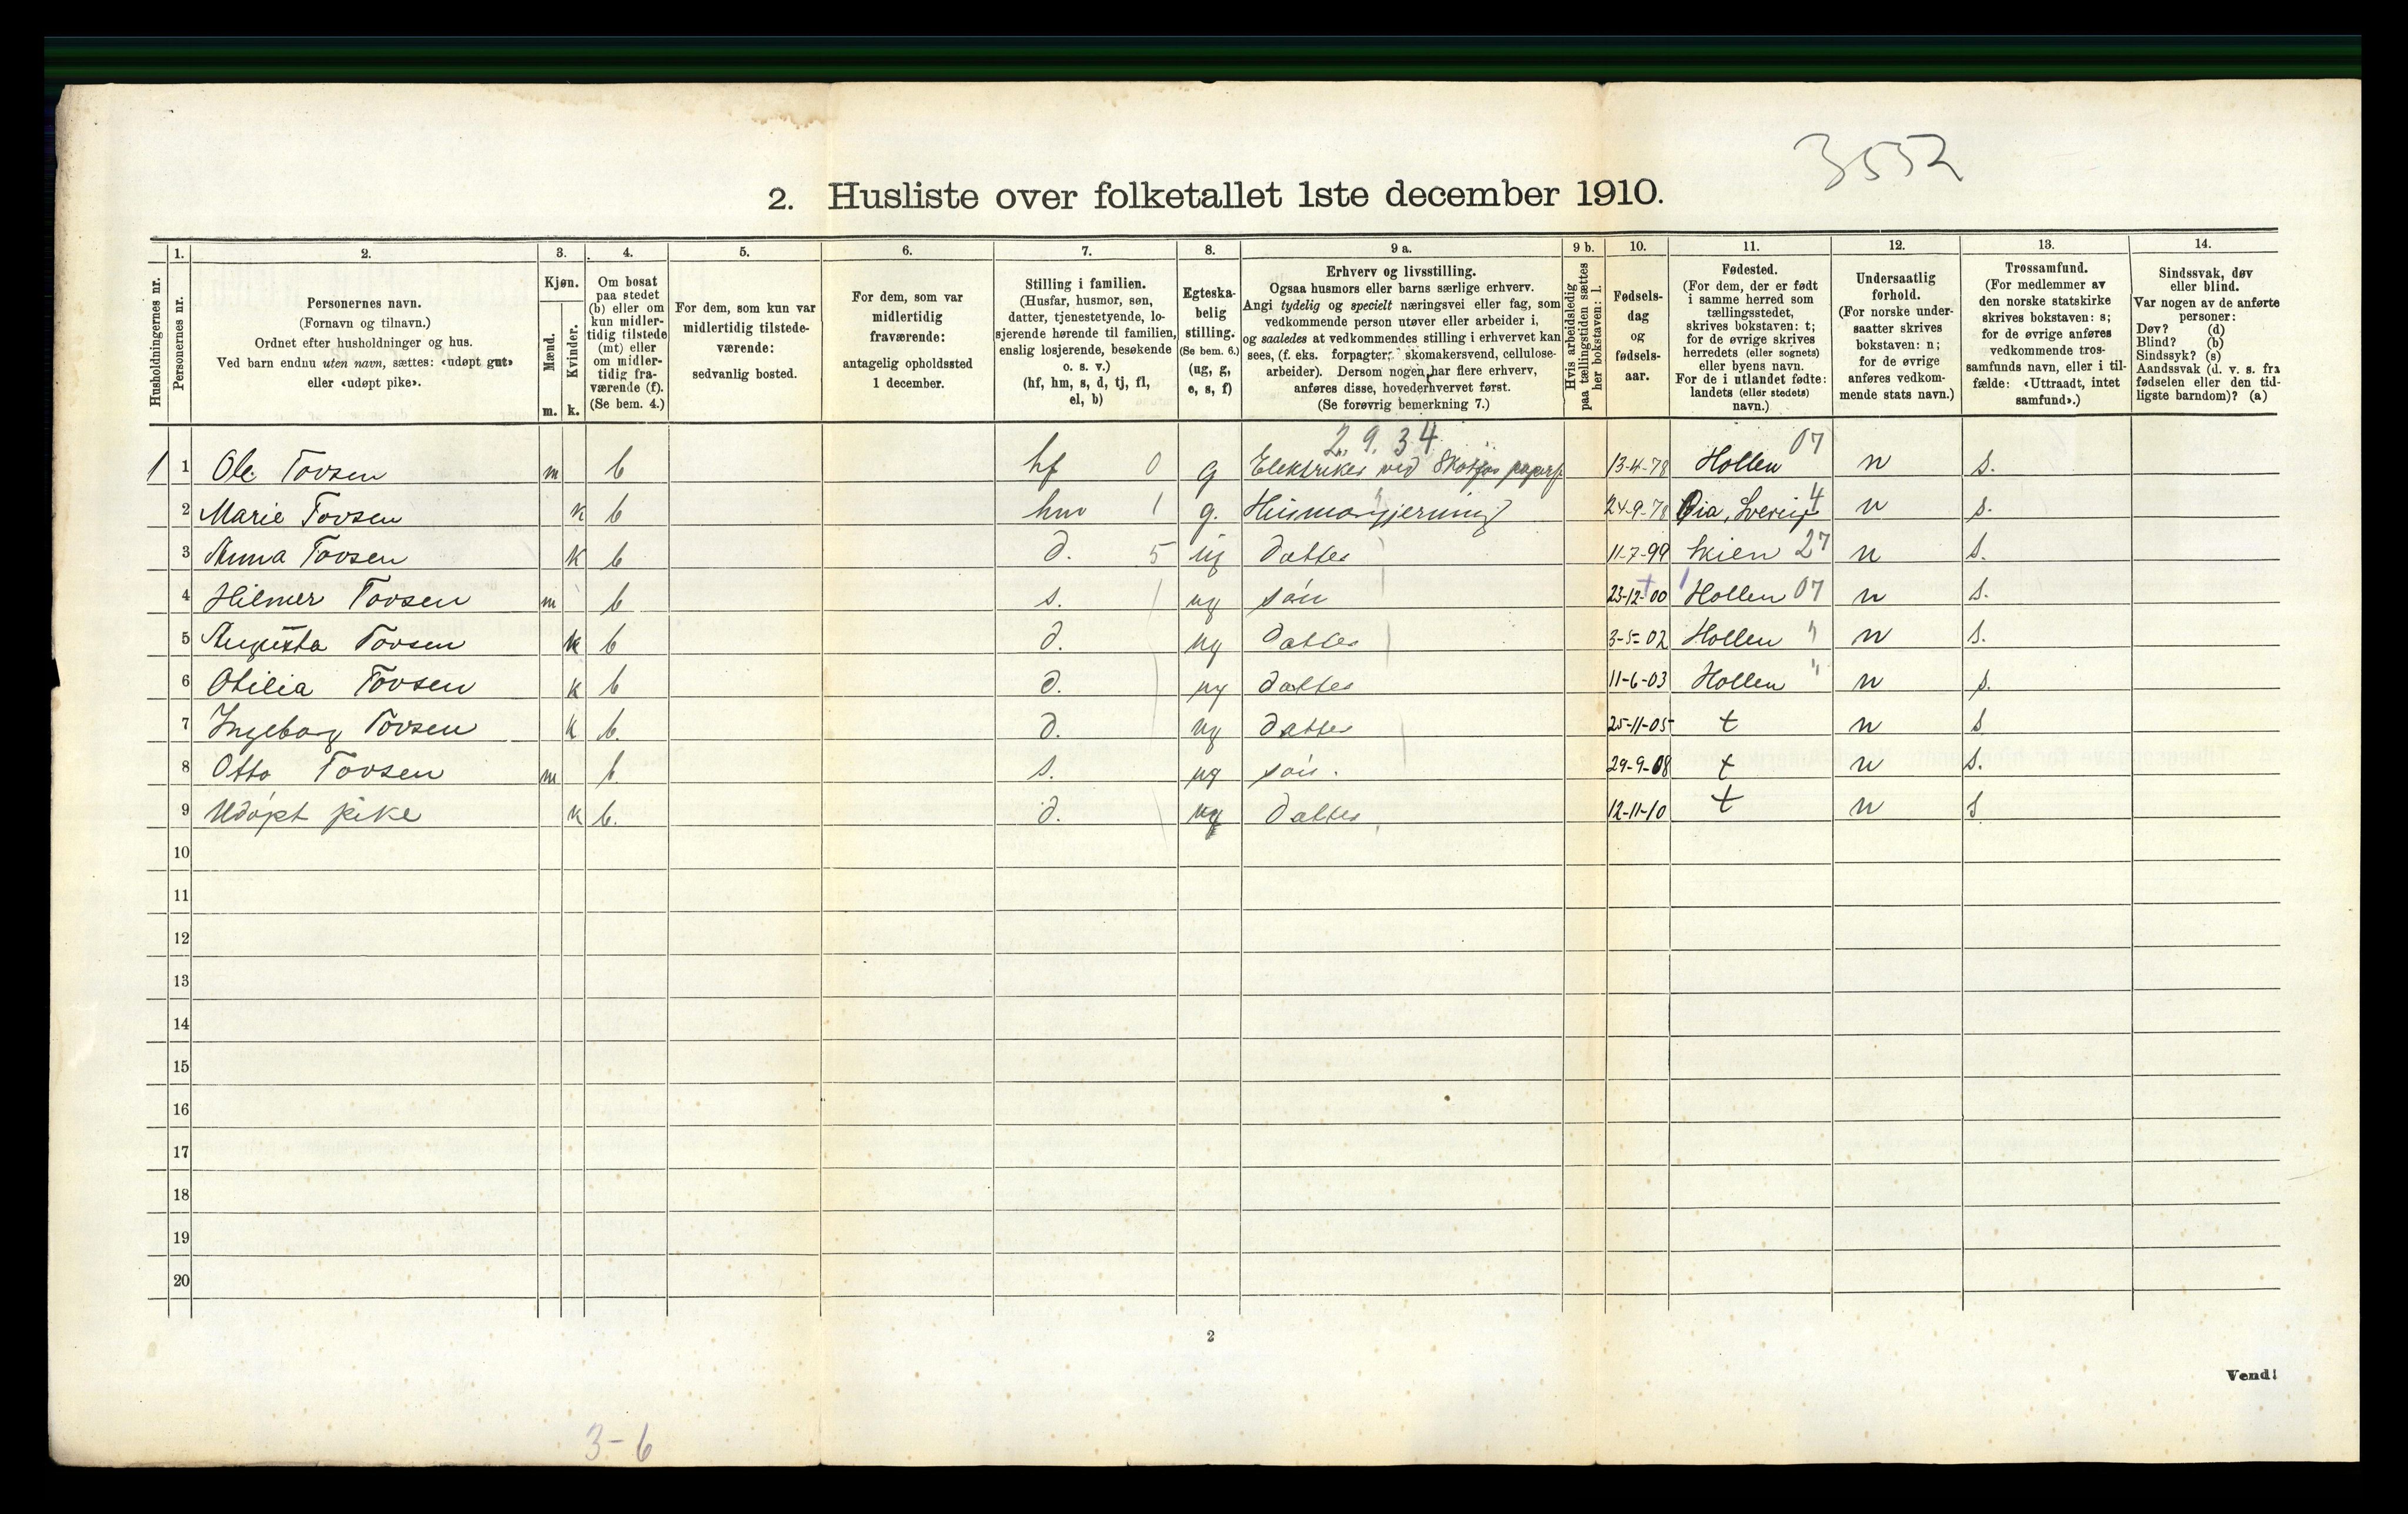 3552
2. Husliste over folketallet 1ste december 1910.
Husholdningernes nr.
1.
Personernes nr.
2.
Personernes navn.
(Fornavn og tilnavn.)
Ordnet efter husholdninger og hus.
Ved barn endnu uten navn, sættes: «udøpt gut»
eller «udøpt pike».
3.
Kjøn.
Mænd.
Kvinder.
m. k.
4.
Om bosat
paa stedet
(b) eller om
kun midler-
tidig tilstede
(mt) eller
om midler-
tidig fra-
værende (f).
(Se bem. 4.)
5.
For dem, som kun var
midlertidig tilstede-
værende:
sedvanlig bosted.
6.
For dem, som var
midlertidig
fraværende:
antagelig opholdssted
1 december.
7.
Stilling i familien.
(Husfar, husmor, søn,
datter, tjenestetyende, lo-
sjerende hørende til familien,
enslig losjerende, besøkende
o. s. v.)
(hf, hm, s, d, tj, fl,
el, b)
8.
Egteska-
belig
stilling.
(Se bem. 6.)
(ug, g,
e, s, f)
9 a.
Erhverv og livsstilling.
Ogsaa husmors eller barns særlige erhverv.
Angi tydelig og specielt næringsvei eller fag, som
vedkommende person utøver eller arbeider i,
og saaledes at vedkommendes stilling i erhvervet kan
sees, (f. eks. forpagter, skomakersvend, cellulose-
arbeider). Dersom nogen har flere erhverv,
anføres disse, hovederhvervet først.
(Se forøvrig bemerkning 7.)
9 b.
Hvis arbeidsledig
paa tællingstiden sættes
her bokstaven: l.
10.
Fødsels-
dag
og
fødsels-
aar.
11.
Fødested.
(For dem, der er født
i samme herred som
tællingsstedet,
skrives bokstaven: t;
for de øvrige skrives
herredets (eller sognets)
eller byens navn.
For de i utlandet fødte:
landets (eller stedets)
navn.)
12.
Undersaatlig
forhold.
(For norske under-
saatter skrives
bokstaven: n;
for de øvrige
anføres vedkom-
mende stats navn.)
13.
Trossamfund.
(For medlemmer av
den norske statskirke
skrives bokstaven: s;
for de øvrige anføres
vedkommende tros-
samfunds navn, eller i til-
fælde: «Uttraadt, intet
samfund».)
14.
Sindssvak, døv
eller blind.
Var nogen av de anførte
personer:
Døv? (d)
Blind? (b)
Sindssyk? (s)
Aandssvak (d. v. s. fra
fødselen eller den tid-
ligste barndom)? (a)
2.9.34 07
1 1 Ole Tovsen m b hf 0 g Elektriker ved Skotfos papirf 13-4-78 Hollen n s.
2 Marie Tovsen k b hm 1 g. Husmorgjerning 24-9-78 Sverig 4 n s.
3 Anna Tovsen k b d. 5 ug datter 11-7-99 Skien 27 n s.
4 Hilmer Tovsen m b s. ug søn 23-12-00 Hollen 07 n s.
5 Augusta Tovsen k b d. ug datter 3-5-02 Hollen " n s.
6 Otilia Tovsen k b d. ug datter 11-6-03 Hollen " n s.
7 Ingeborg Tovsen k b. d. ug datter 25-11-05 t n s
8 Otto Tovsen m b. s. ug søn. 29-9-08 t n s.
9 Udøpt pike k b. d. ug datter 12-11-10 t n s
10
11
12
13
14
15
16
17
18
19
20
2
Vend!
3-6